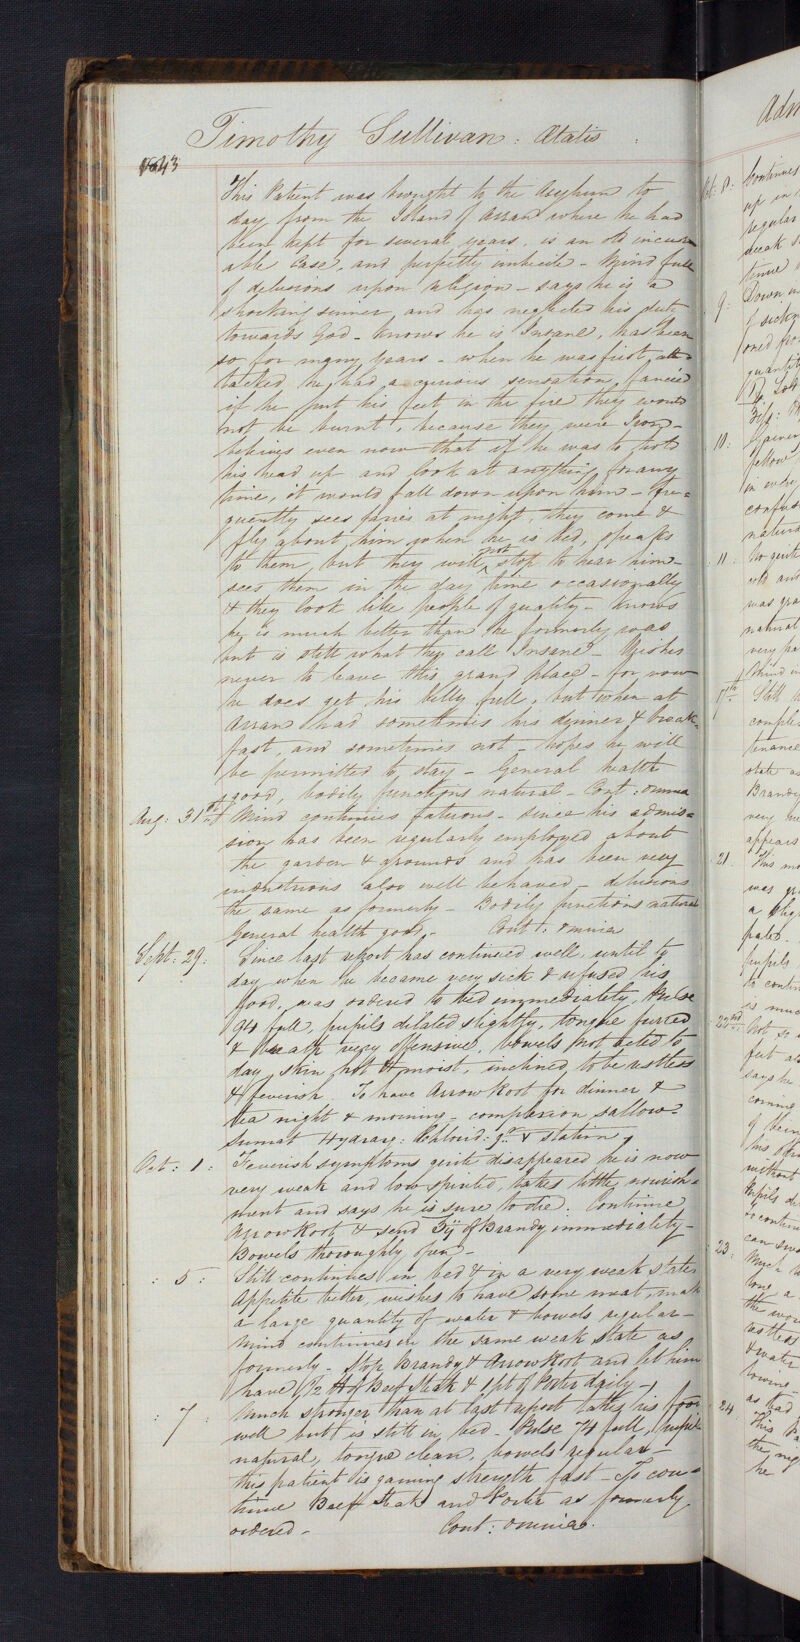 Timothy Sullivan : Ætatis :
1843
This Patient was brought to the Asylum to
day from the Island of Arran where he had
been kept for several years, is an old incur-
able case, and perfectly imbecile - Mind full
of delusions upon religion - says he is a
shocking sinner, and has neglected his duty
towards God - Knows he is Insane, has been
so for many years - when he was first at-
tacked, he had a curious sensation, fancied
if he put his feet in the fire they would
not be burnt, because they were Iron -
believes even now that if he was to hold
his head up and look at anything for any
time, it would fall down upon him - Fre=
quently sees faries at night, they come &
fly about him when he is bed, speaks
to them, but they will not stop to hear him -
sees them in the day time occasionally
& they look like people of quality - Knows
he is much better than he formerly was
but is still what they call Insane - Wishes
never to leave this grand place - for now
he does get his belly full, but when at
Arran had sometimes his dinner & break-
fast, and sometimes not - hopes he will
be permitted to stay - General health
good, bodily functions natural - Cont: omnia
Aug: 31st Mind continues fatuous - since his admis=
sion has been regularly employed about
the garden & grounds and has been very
industrious also well behaved - delusions
the same as formerly - Bodily functions natural
General health good - Cont: omnia
Sept: 29: Since last report has continued well, until to
day when he became very sick & refused his
food, was ordered to bed immediately, Pulse
94 full, pupils dilated slightly, tongue furred
& breath very offensive, bowels not acted to
day, skin hot & moist, inclined to be restless
& feverish. To have Arrow Root for dinner &
tea night & morning - complexion sallow -
Sumat Hydrarg: Chlorid: gr. V statim
Oct: 1: Feverish symptoms quite disappeared he is now
very weak and low spirited, takes little nourish=
ment and says he is sure to die. Continue
Arrow Root & send ℥ij of Brandy immediately -
Bowels thoroughly open -
: 5: Still continues in bed & in a very weak state,
appetite better, wishes to have some meat,
a large quantity of water & bowels regular -
mind continues in the same weak state as
formerly - Stop Brandy & Arrow Root and let him
have 1/2 ℔ of Beef Steak & 1 pt of Porter daily -
: 7: Much stronger than at last report takes his food
well but is still in bed - Pulse 74 full, pupils
natural, tongue clean, bowels regular -
this patient is gaining strength fast - To con=
tinue Beef Steak and Porter as formerly
ordered - Cont: omnia.
Oct: 8: Continues
up in
regular
weak
9: Down
10:
fellow
11:
was
natural
very
17th Still
state as
Brandy
very
appears
21 This
was
a
pupils
is much
22nd Not so
says he
of
his
without
23: Much
tone a
the
restless
& water
as had
24 This
the
he